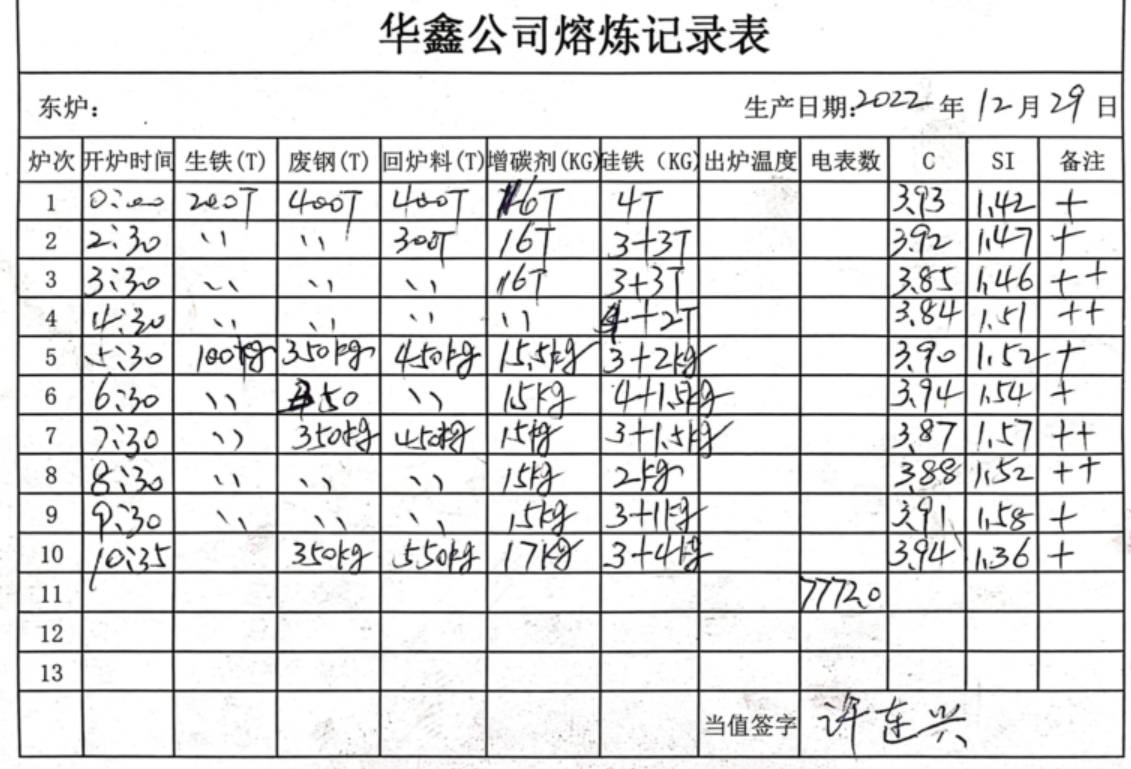 华鑫公司熔炼记录表
东炉： 生产日期:2022年12月29日
炉次 开炉时间 生铁(T) 废钢(T) 回炉料(T) 增碳剂(KG) 硅铁（KG) 出炉温度 电表数 C SI 备注
1 0:00 200T 400T 400T 16T 4T 3.93 1.42 +
2 2:30 〃 〃 300T 16T 3+3T 3.92 1.47 +
3 3:30 〃 〃 〃 16T 3+3T 3.85 1.46 ++
4 4:30 〃 〃 〃 〃 +2T 3.84 1.51 ++
5 5:30 100kg 350kg 450kg 15.5kg 3+2kg 3.90 1.52 +
6 6:30 〃 50 〃 15kg 4+1.5kg 3.94 1.54 +
7 7:30 〃 350kg 450kg 15kg 3+1.5kg 3.87 1.57 ++
8 8:30 〃 〃 〃 15kg 2kg 3.88 1.52 ++
9 9:30 〃 〃 〃 15kg 3+1kg 3.91 1.58 +
10 10:35 350kg 550kg 17kg 3+4kg 3.94 1.36 +
11 77720
12
13
当值签字 许连兴